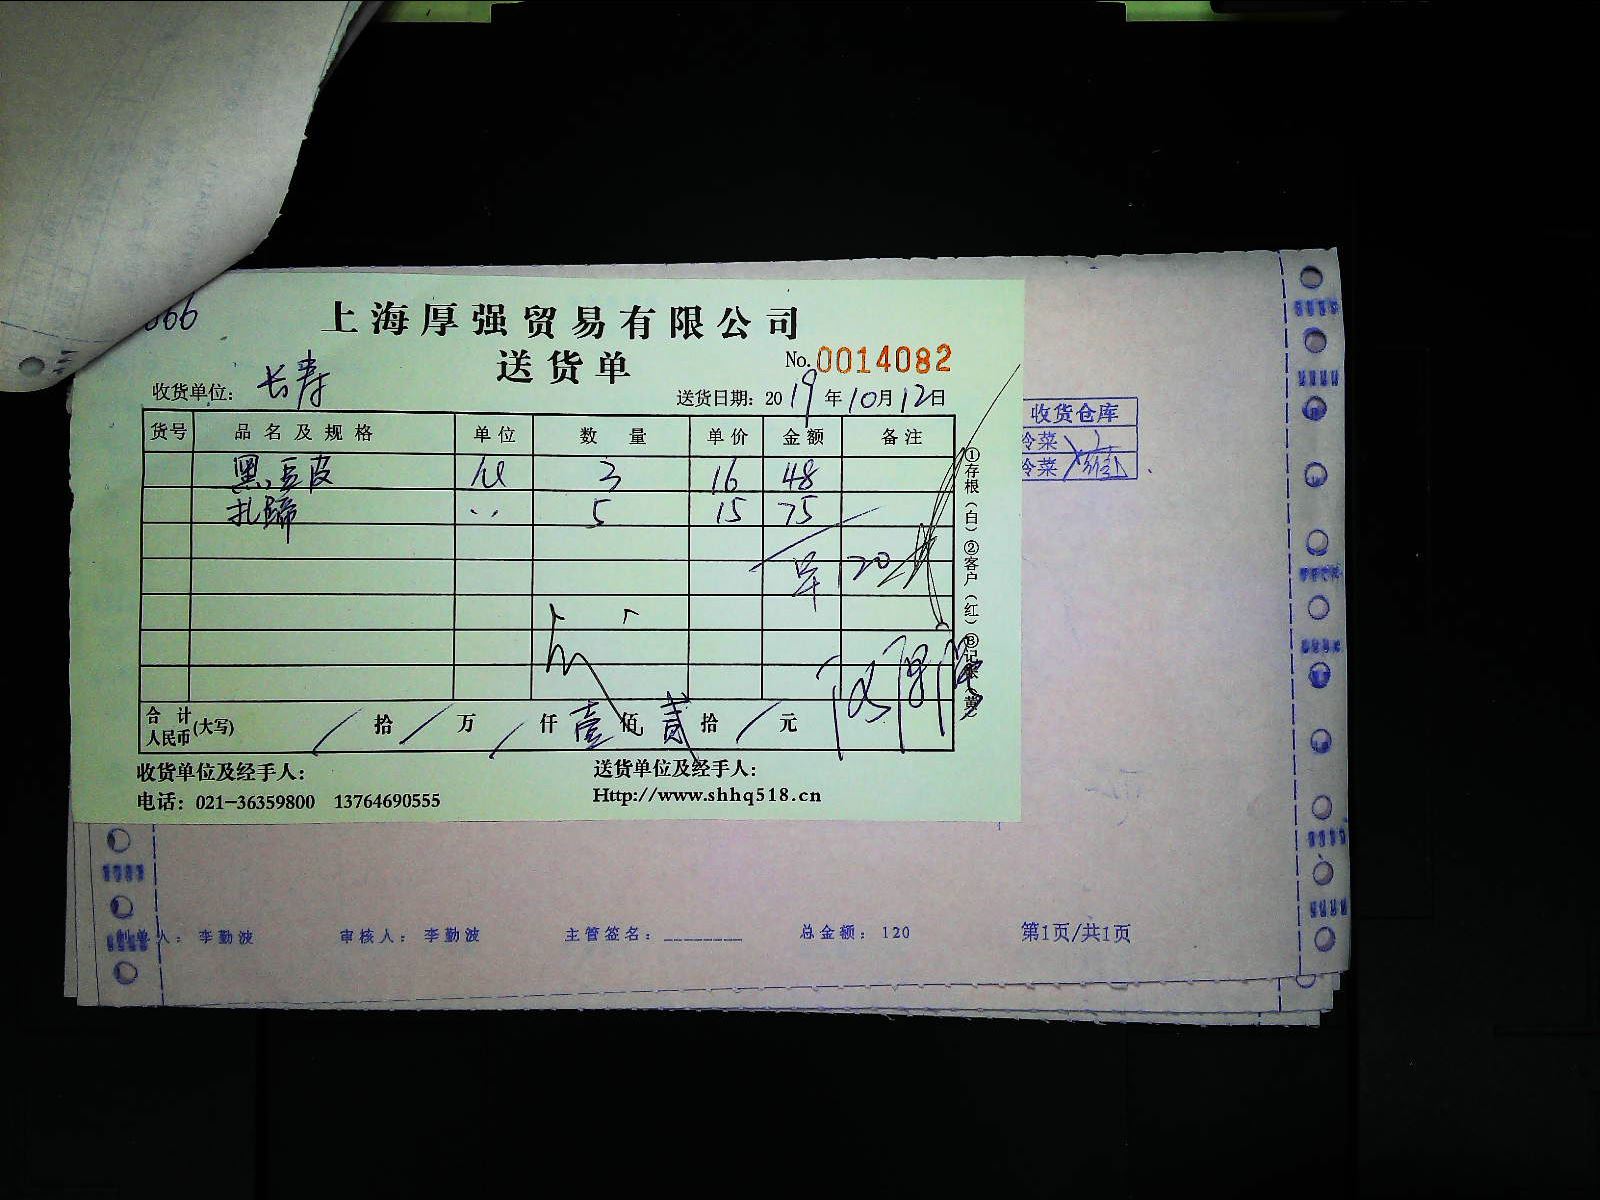 上海厚强贸易有限公司
送货单
No. 0014082
收货单位: 长寿
送货日期: 2019年10月12日
货号 品名及规格 单位 数量 单价 金额 备注
黑豆皮 3 16 48
扎蹄 〃 5 15 75
120
合计人民币(大写) / 拾 / 万 / 仟 壹 佰 贰 拾 / 元
收货单位及经手人:
送货单位及经手人:
电话: 021-36359800 13764690555
Http://www.shhq518.cn
①存根(白)②客户(红)③记
收货仓库
冷菜
冷菜
制单人: 李勤波 审核人: 李勤波 主管签名:________ 总金额: 120 第1页/共1页